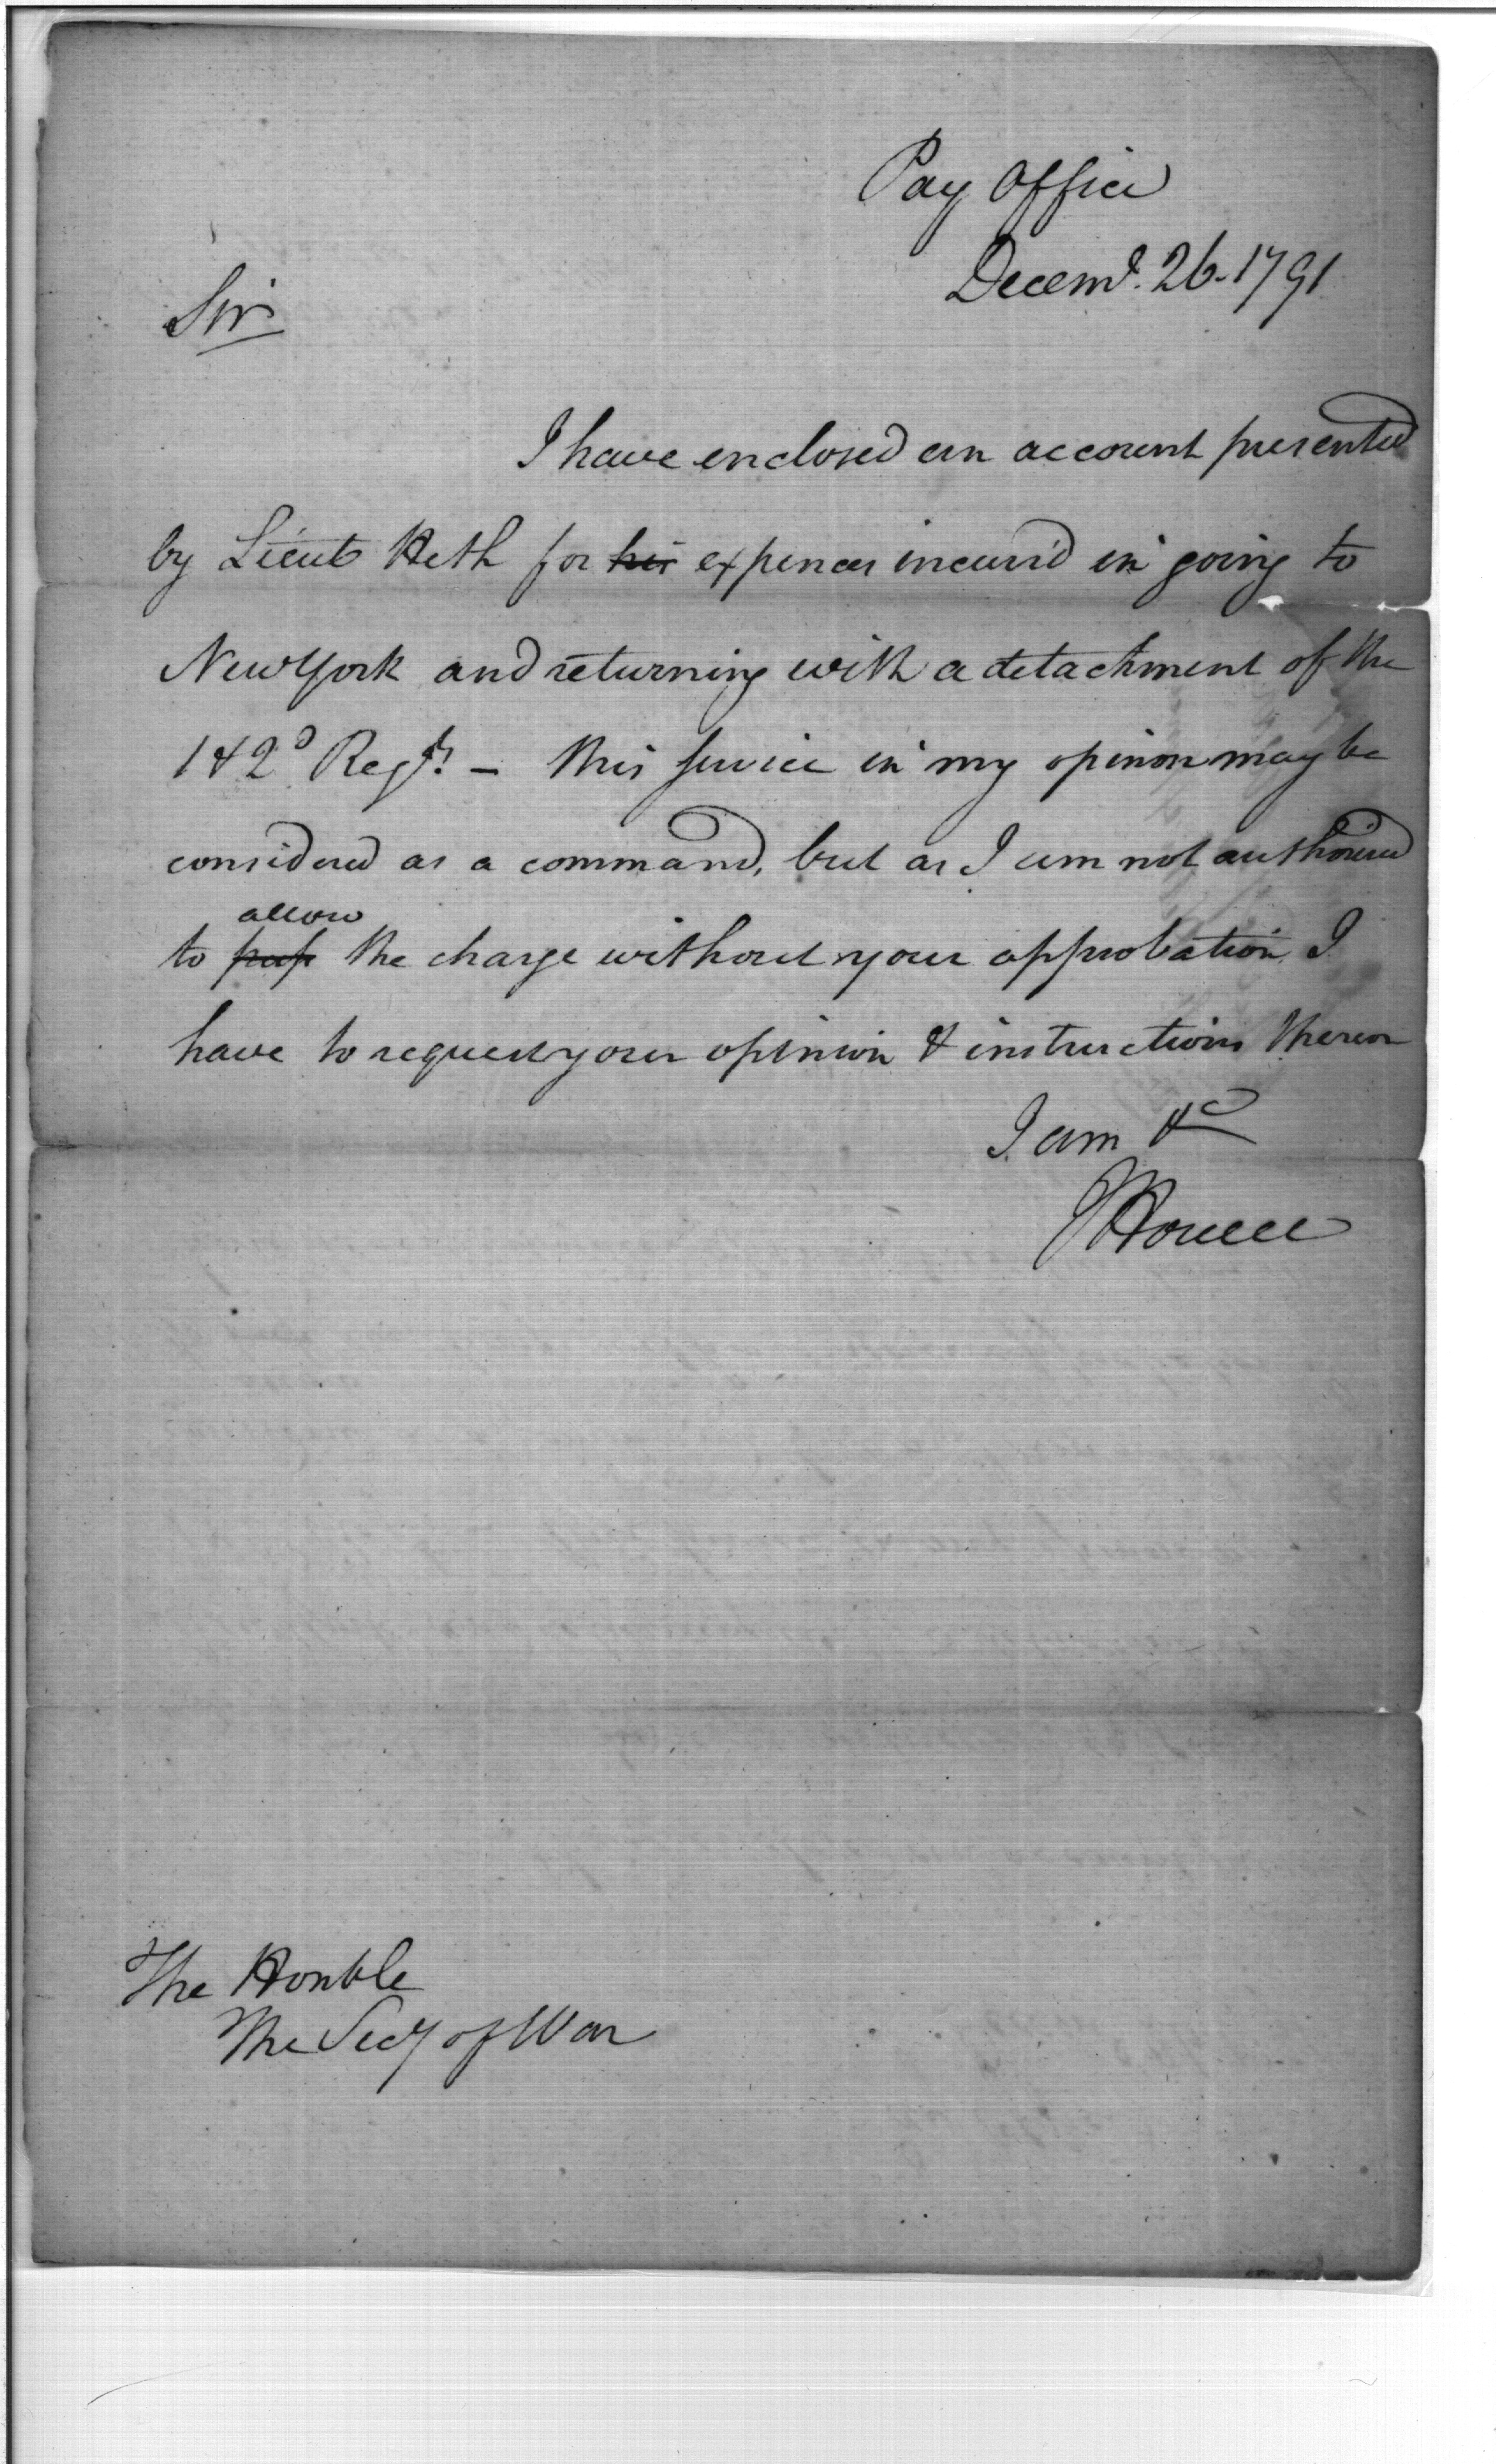 Pay Office
Decemr. 26. 1791
Sir
I have enclosed an account presented
by Lieut Heth for his expences incurr'd in going to
New York and returning with a detachment of the
1 & 2d Regts. – this service in my opinon may be
considered as a command, but as I am not authorised
allow
to pass the charge without your approbation, I
have to request your opinion & instructions thereon
I am &c
JHowell
The Honble
The Secy of War